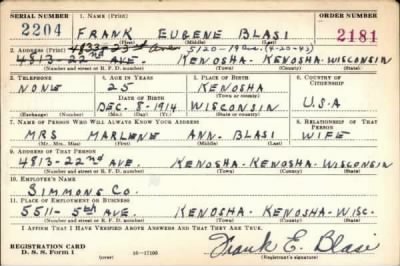 SERIAL NUMBER 1. NAME (Print) ORDER NUMBER
2204 FRANK EUGENE BLASI 2181
(First) (Middle) (Last)
2. ADDRESS (Print) 4833-23rd Ave 5120-19 Ave (4-20-43)
4813-22nd AVE. KENOSHA-KENOSHA-WISCONSIN
(Number and street or R. F. D. number) (Town) (County) (State)
3. TELEPHONE 4. AGE IN YEARS 5. PLACE OF BIRTH 6. COUNTRY OF CITIZENSHIP
NONE 25 KENOSHA
DATE OF BIRTH (Town or county)
DEC. 8-1914 WISCONSIN U.S.A
(Exchange) (Number) (Mo.) (Day) (Yr.) (State or country)
7. NAME OF PERSON WHO WILL ALWAYS KNOW YOUR ADDRESS 8. RELATIONSHIP OF THAT PERSON
MRS MARLENE ANN. BLASI WIFE
(Mr., Mrs., Miss) (First) (Middle) (Last)
9. ADDRESS OF THAT PERSON
4813-22nd AVE. KENOSHA-KENOSHA-WISCONSIN
(Number and street or R. F. D. number) (Town) (County) (State)
10. EMPLOYER'S NAME
SIMMONS CO.
11. PLACE OF EMPLOYMENT OR BUSINESS
5511-5th AVE. KENOSHA-KENOSHA-WISC.
(Number and street or R. F. D. number) (Town) (County) (State)
I AFFIRM THAT I HAVE VERIFIED ABOVE ANSWERS AND THAT THEY ARE TRUE.
REGISTRATION CARD
D. S. S. Form 1 (over) 16-17105 Frank E. Blasi
(Registrant's signature)